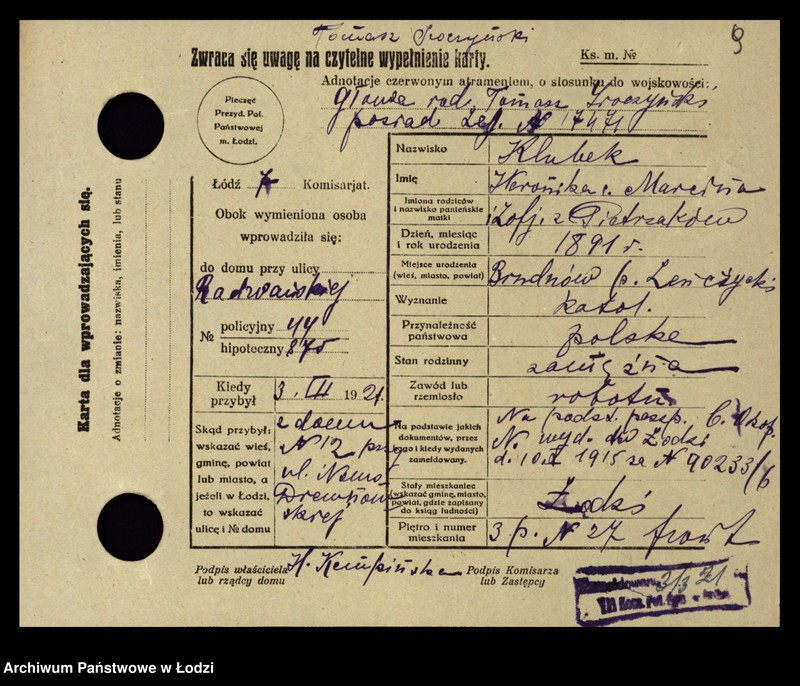 Tomasz
Zwraca się uwagę na czytelne wypełnienie karty.
Ks. m. №
9
Adnotacje czerwonym atramentem, o stosunku do wojskowości:
Tomasz
№ 17471
Karta dla wprowadzających się.
Adnotacje o zmianie: nazwiska, imienia, lub stanu
Pieczęć
Prezyd. Pol.
Państwowej
m. Łodzi.
Łódź Komisarjat.
Obok wymieniona osoba
wprowadziła się:
do domu przy ulicy
Radwańskiej
№ policyjny 44
hipoteczny 875
Kiedy
przybył 3. III 1921
Skąd przybył:
wskazać wieś,
gminę, powiat
lub miasto, a
jeżeli w Łodzi,
to wskazać
ulicę i № domu
z domu
№ 12 przy
ul. Nowo
skiej
Nazwisko Klubek
Imię Weronika c. Marcina
Imiona rodziców
i nazwisko panieńskie
matki
i Zofj. z Pietrzaków
Dzień, miesiąc
i rok urodzenia 1891 r.
Miejsce urodzenia
(wieś, miasto, powiat)
p. Łęczycki
Wyznanie katol.
Przynależność
państwowa polska
Stan rodzinny zamężna
Zawód lub
rzemiosło robotn.
Na podstawie jakich
dokumentów, przez
kogo i kiedy wydanych
zameldowany.
Na podst. pasp. b. Okup.
N. wyd. w Łodzi
1915 za № 90233/6
Stały mieszkaniec
(wskazać gminę, miasto,
powiat, gdzie zapisany
do ksiąg ludności)
Łódź
Piętro i numer
mieszkania 3 p. № 27 front
Podpis właściciela
lub rządcy domu
H. Kempińska
Podpis Komisarza
lub Zastępcy
3/3 21
Archiwum Państwowe w Łodzi